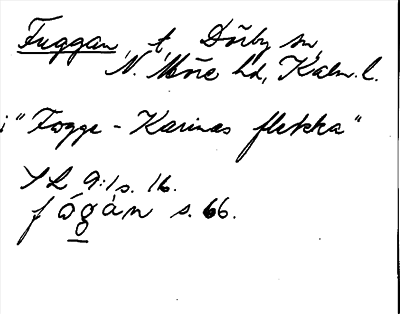 Fuggan, t, Dörby sn,
N. Möre hd, Kalm. l.
i "Fogge-Karinas flekka"
SL 9:1 s. 16.
s. 66.